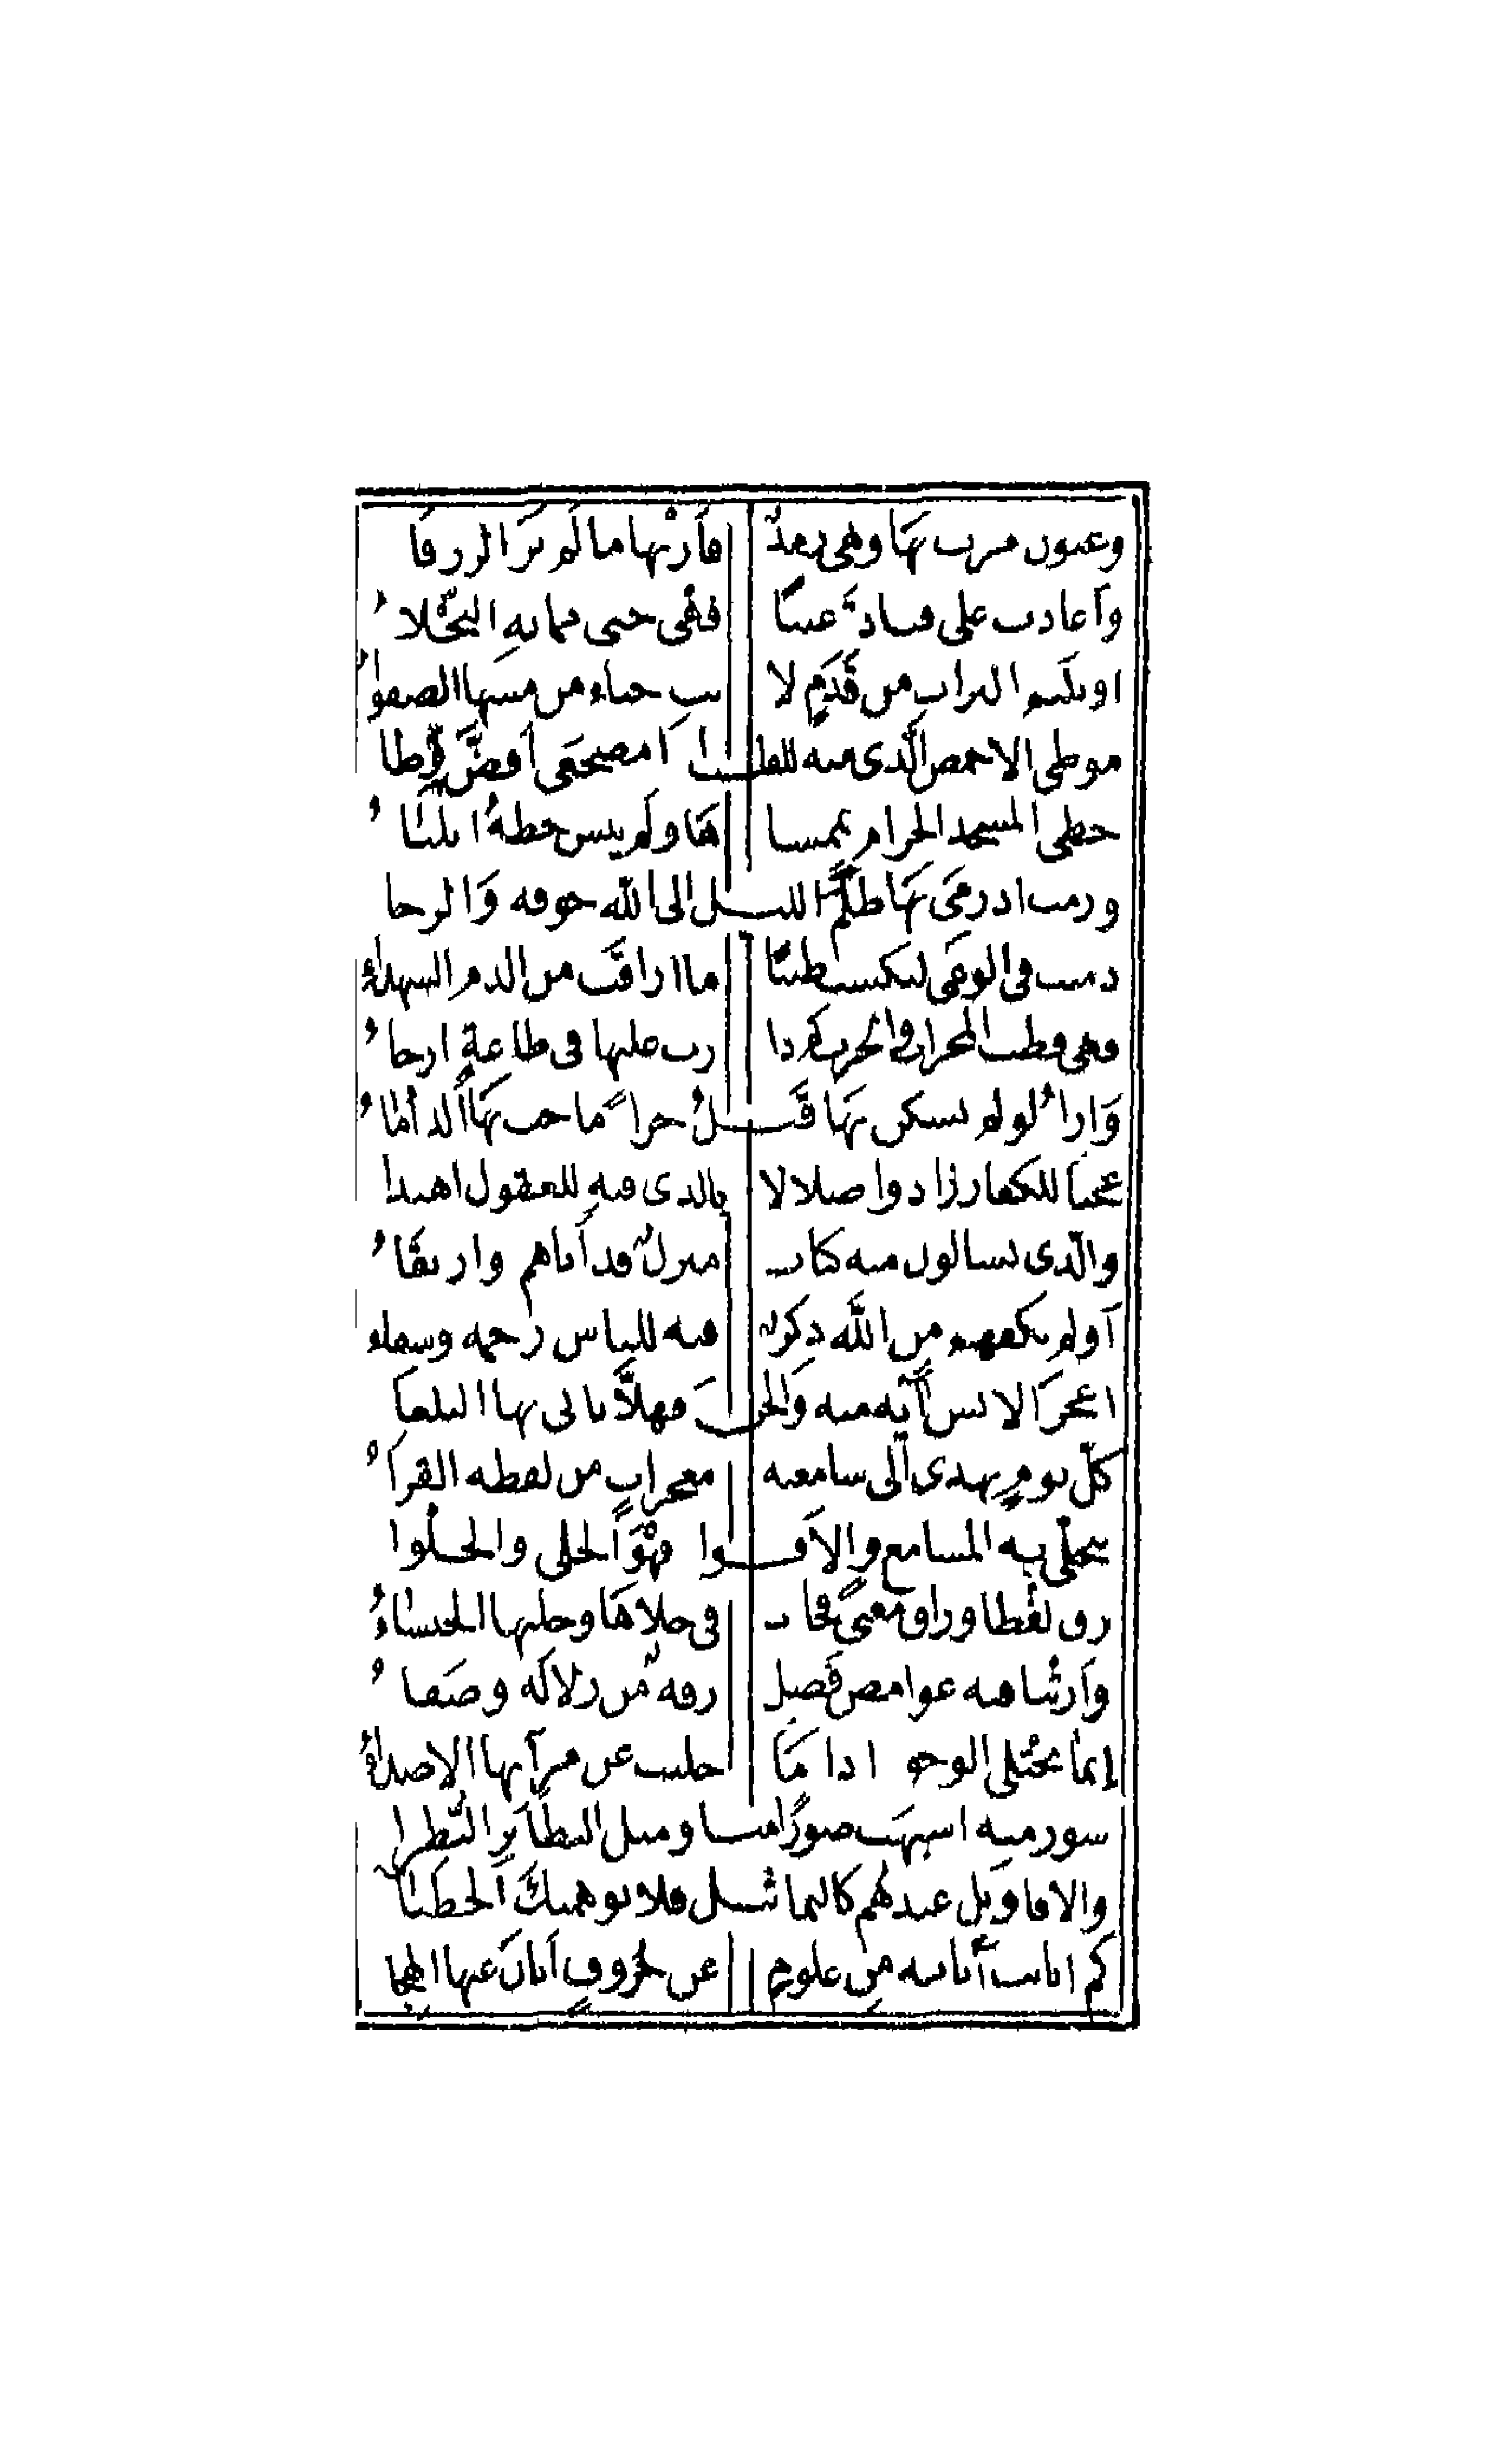 وعيون مرت بها وهي رمد فأرتها ما لم تر الزرقا
وأعادت على قتادة عينا فهي حتى مماته النجلاء
او بلثم التراب من قدم لا نت حياء من مشيها الصفوا
موطئ الاخمص الذي منه للقلب اذا مضجعي أقض وطا
حظي المسجد الحرام بممشا ها ولم ينس حظه ايلياء
ورمت اذ رمى بها ظلم الليل الى الله خوفه والرجا
دميت في الوغى لتكسب طيبا ما اراقت من الدم الشهداء
وهي قطب المحراب والحرب كم دا رت عليها في طاعة ارحاء
وارا لو لم يسكن بها قبل حراء ماجت بها الدأماء
عجبا للكفار زادوا ضلالا بالذي فيه للعقول اهتدا
والذي يسألون منه كتاب منزل قد أتاهم وارتقاء
أولم يكفهم من الله ذكر فيه للناس رحمة وشفاء
اعجز الانس آية منه والجن فهلا تأتي بها البلغا
كل يوم يهدى الى سامعيه معجزات من لفظه القراء
تتحلى به المسامع والافوا فهو الحلى والحلوا
رق لفظا وراق معنى فجات في حلاها وحليها الخنساء
وأرتنا فيه غوامض فضل رقة من زلاله وصفاء
إنما تجتلى الوجو اذا ما جليت عن مرآتها الاصداء
سور منه اشبهت صورا منا ومثل النظائر النظرا
والاقاويل عندهم كالتماثيل فلا يوهمنك الخطباء
كم ابانت آياته من علوم عن حروف أبان عنها الهجا